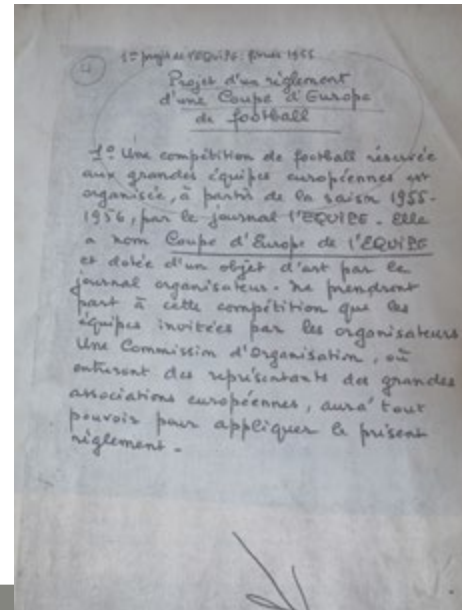 4
1er projet de l'EQUIPE : février 1955
Projet d'un règlement
d'une Coupe d'Europe
de football
1º Une compétition de football réservée
aux grandes équipes européennes est
organisée, à partir de la saison 1955-
1956, par le journal l'EQUIPE. Elle
a nom Coupe d'Europe de l'EQUIPE
et dotée d'un objet d'art par le
journal organisateur. Ne prendront
part à cette compétition que les
équipes invitées par les organisateurs
Une Commission d'Organisation, où
entreront des représentants des grandes
associations européennes, aura tout
pouvoir pour appliquer le présent
règlement.